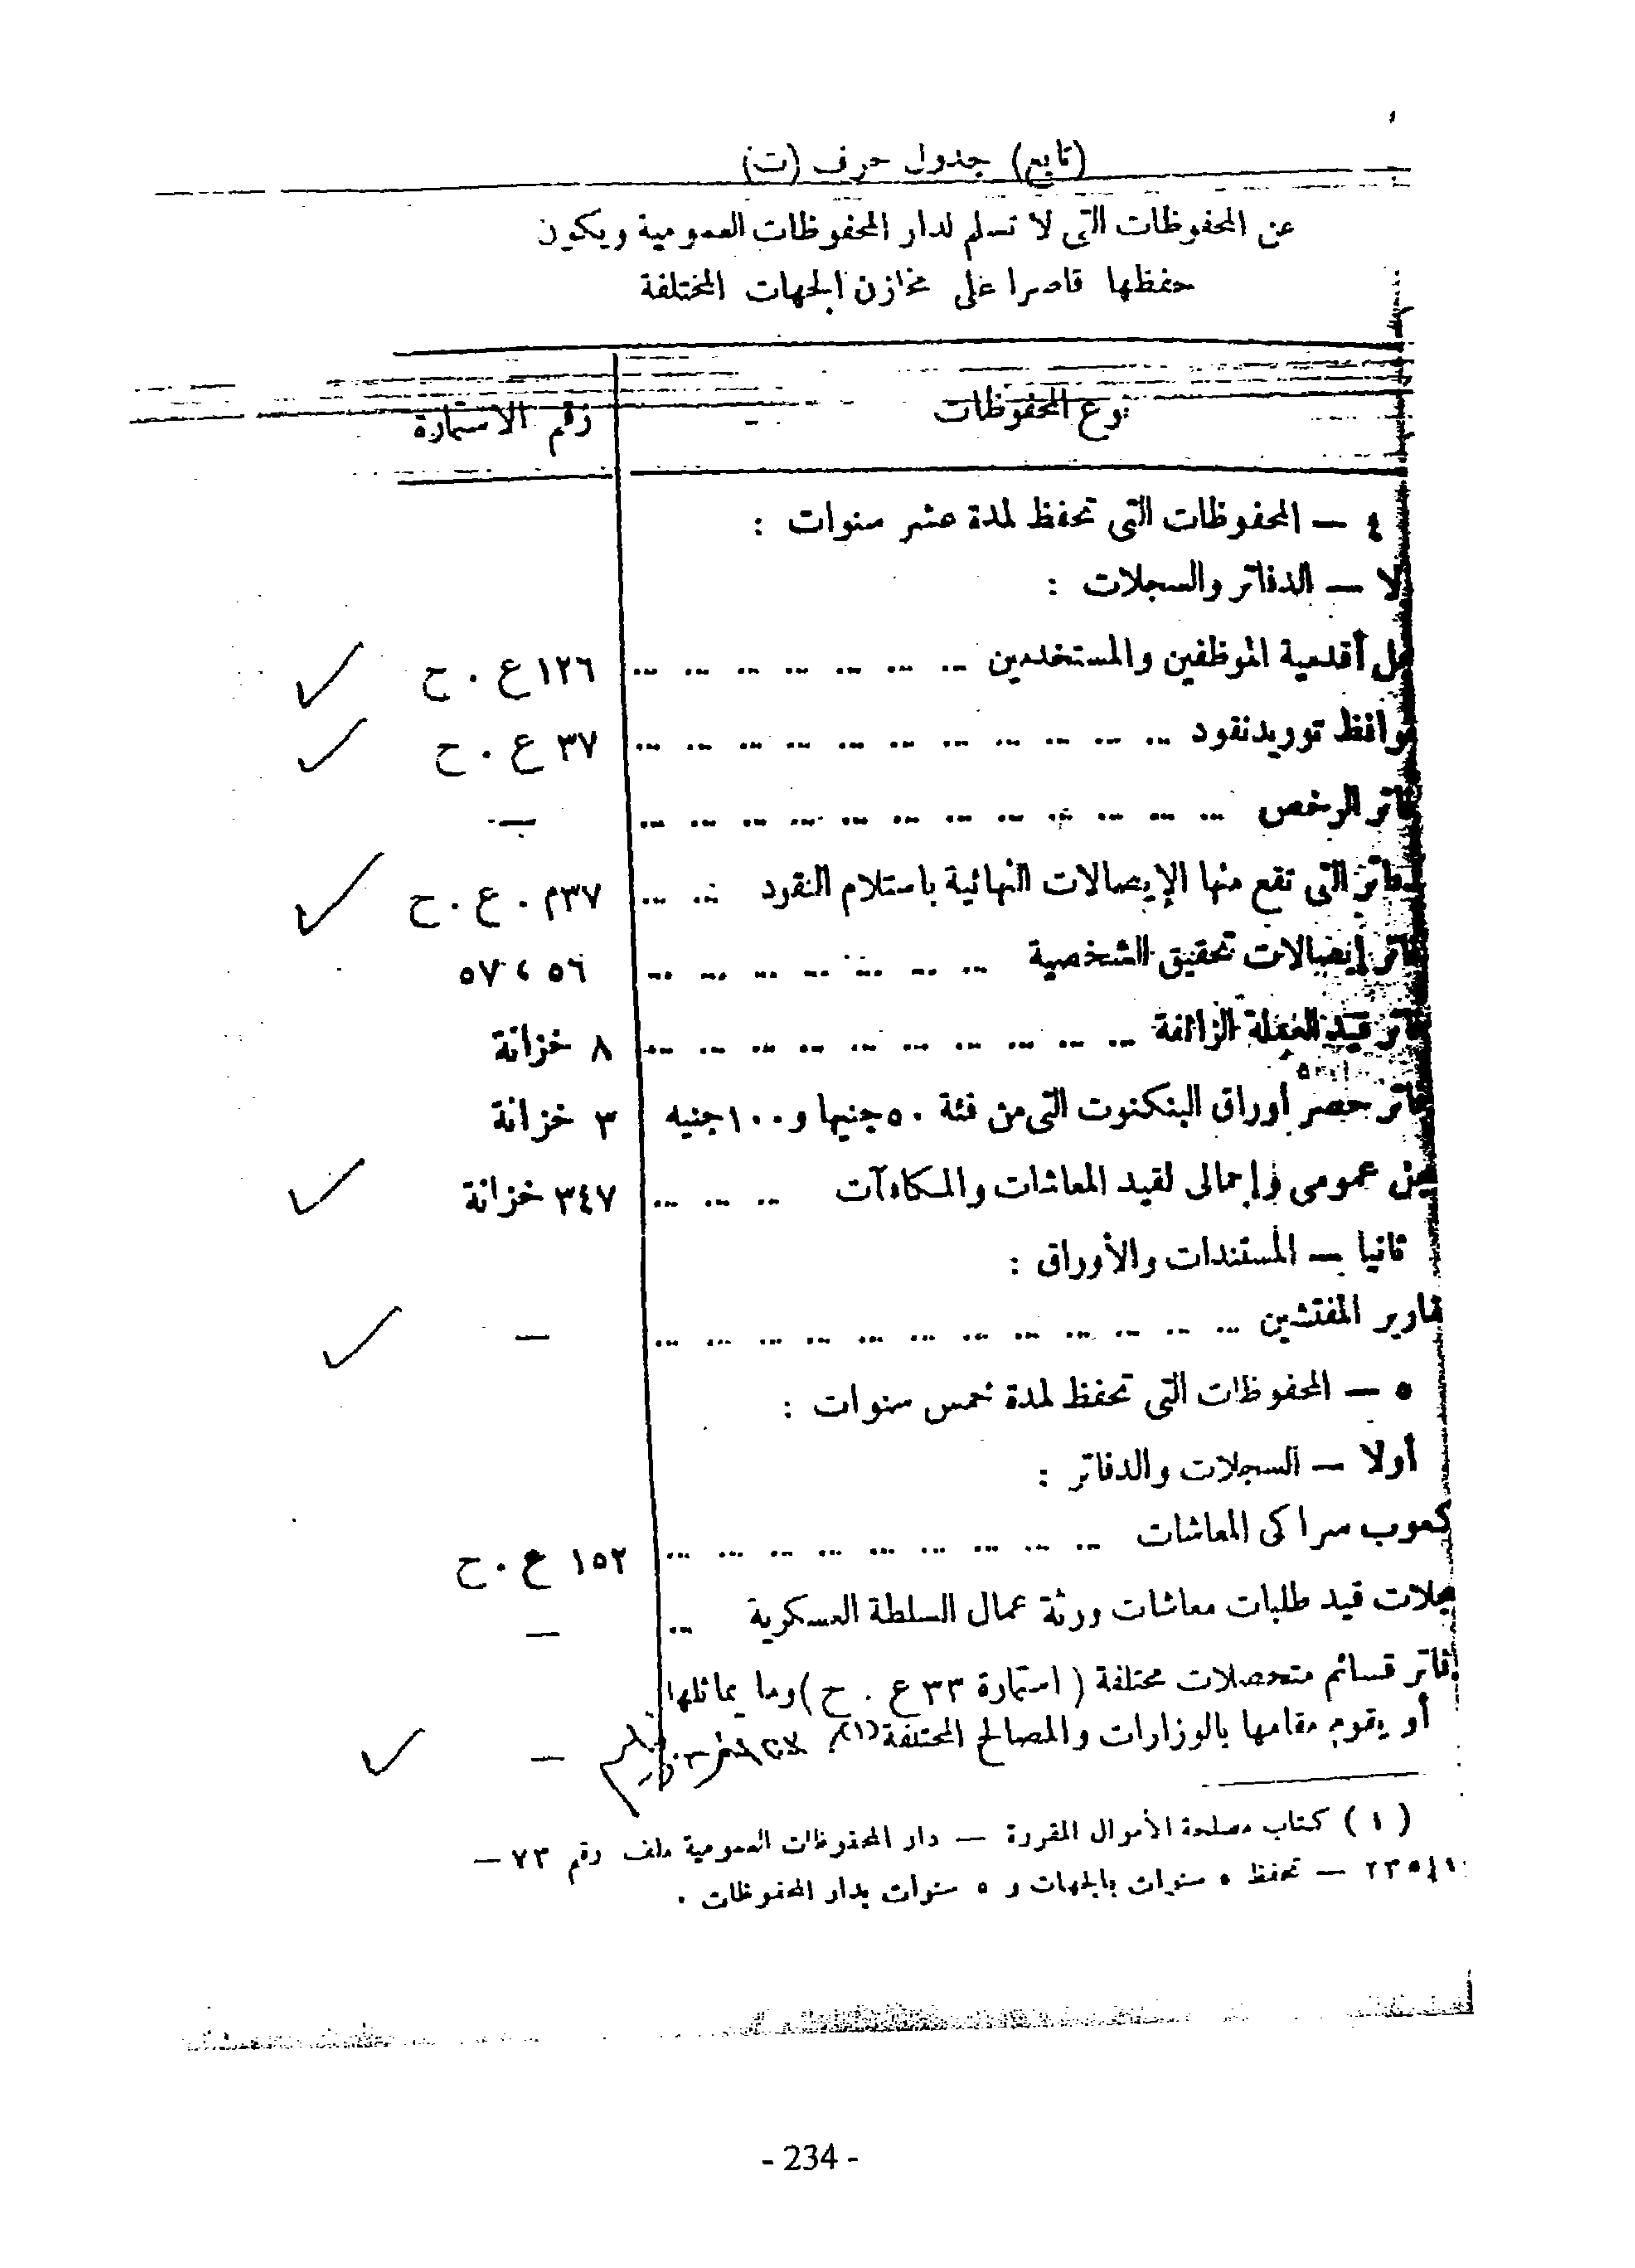 (تابع) جدول حرف (ت)
عن المحفوظات التى لا تسلم لدار المحفوظات العمومية ويكون
حفظها قاصرا على مخازن الجهات المختلفة
نوع المحفوظات رقم الاستمارة
٤ — المحفوظات التى تحفظ لمدة عشر سنوات :
لا — الدفاتر والسجلات :
جل أقدمية الموظفين والمستخدمين ... ... ... ... ... ... ... ١٢٦ ع . ح
وافظ توريد نقود ... ... ... ... ... ... ... ... ... ... ... ٣٧ ع . ح
فاتر الرخص ... ... ... ... ... ... ... ... ... ... ... ... —
فاتر التى تقع منها الإيصالات النهائية باستلام النقود ... ... ٣٧م . ع . ح
فاتر إيصالات تحقيق الشخصية ... ... ... ... ... ... ... ٥٦ ، ٥٧
فاتر قيد العملة الزائفة ... ... ... ... ... ... ... ... ... ... ٨ خزانة
فاتر حصر أوراق البنكنوت التى من فئة ٥٠ جنيها و ١٠٠ جنيه ٣ خزانة
عمومى وإجمالى لقيد المعاشات والمكاءآت ... ... ... ٣٤٧ خزانة
ثانيا — المستندات والأوراق :
قارير المفتشين ... ... ... ... ... ... ... ... ... ... ... ... —
٥ — المحفوظات التى تحفظ لمدة خمس سنوات :
أولا — السجلات والدفاتر :
كعوب سراكى المعاشات ... ... ... ... ... ... ... ... ... ١٥٢ ع . ح
جلات قيد طلبات معاشات ورثة عمال السلطة العسكرية ... —
فاتر قسائم متحصلات مختلفة ( استمارة ٣٣ ع . ح ) وما يماثلها
أو يقوم مقامها بالوزارات والمصالح المختلفة (١) —
( ١ ) كتاب مصلحة الأموال المقررة — دار المحفوظات العمومية ملف رقم ٧٣ —
٢٣٥/١ — تحفظ ٥ سنوات بالجهات و ٥ سنوات بدار المحفوظات .
- 234 -